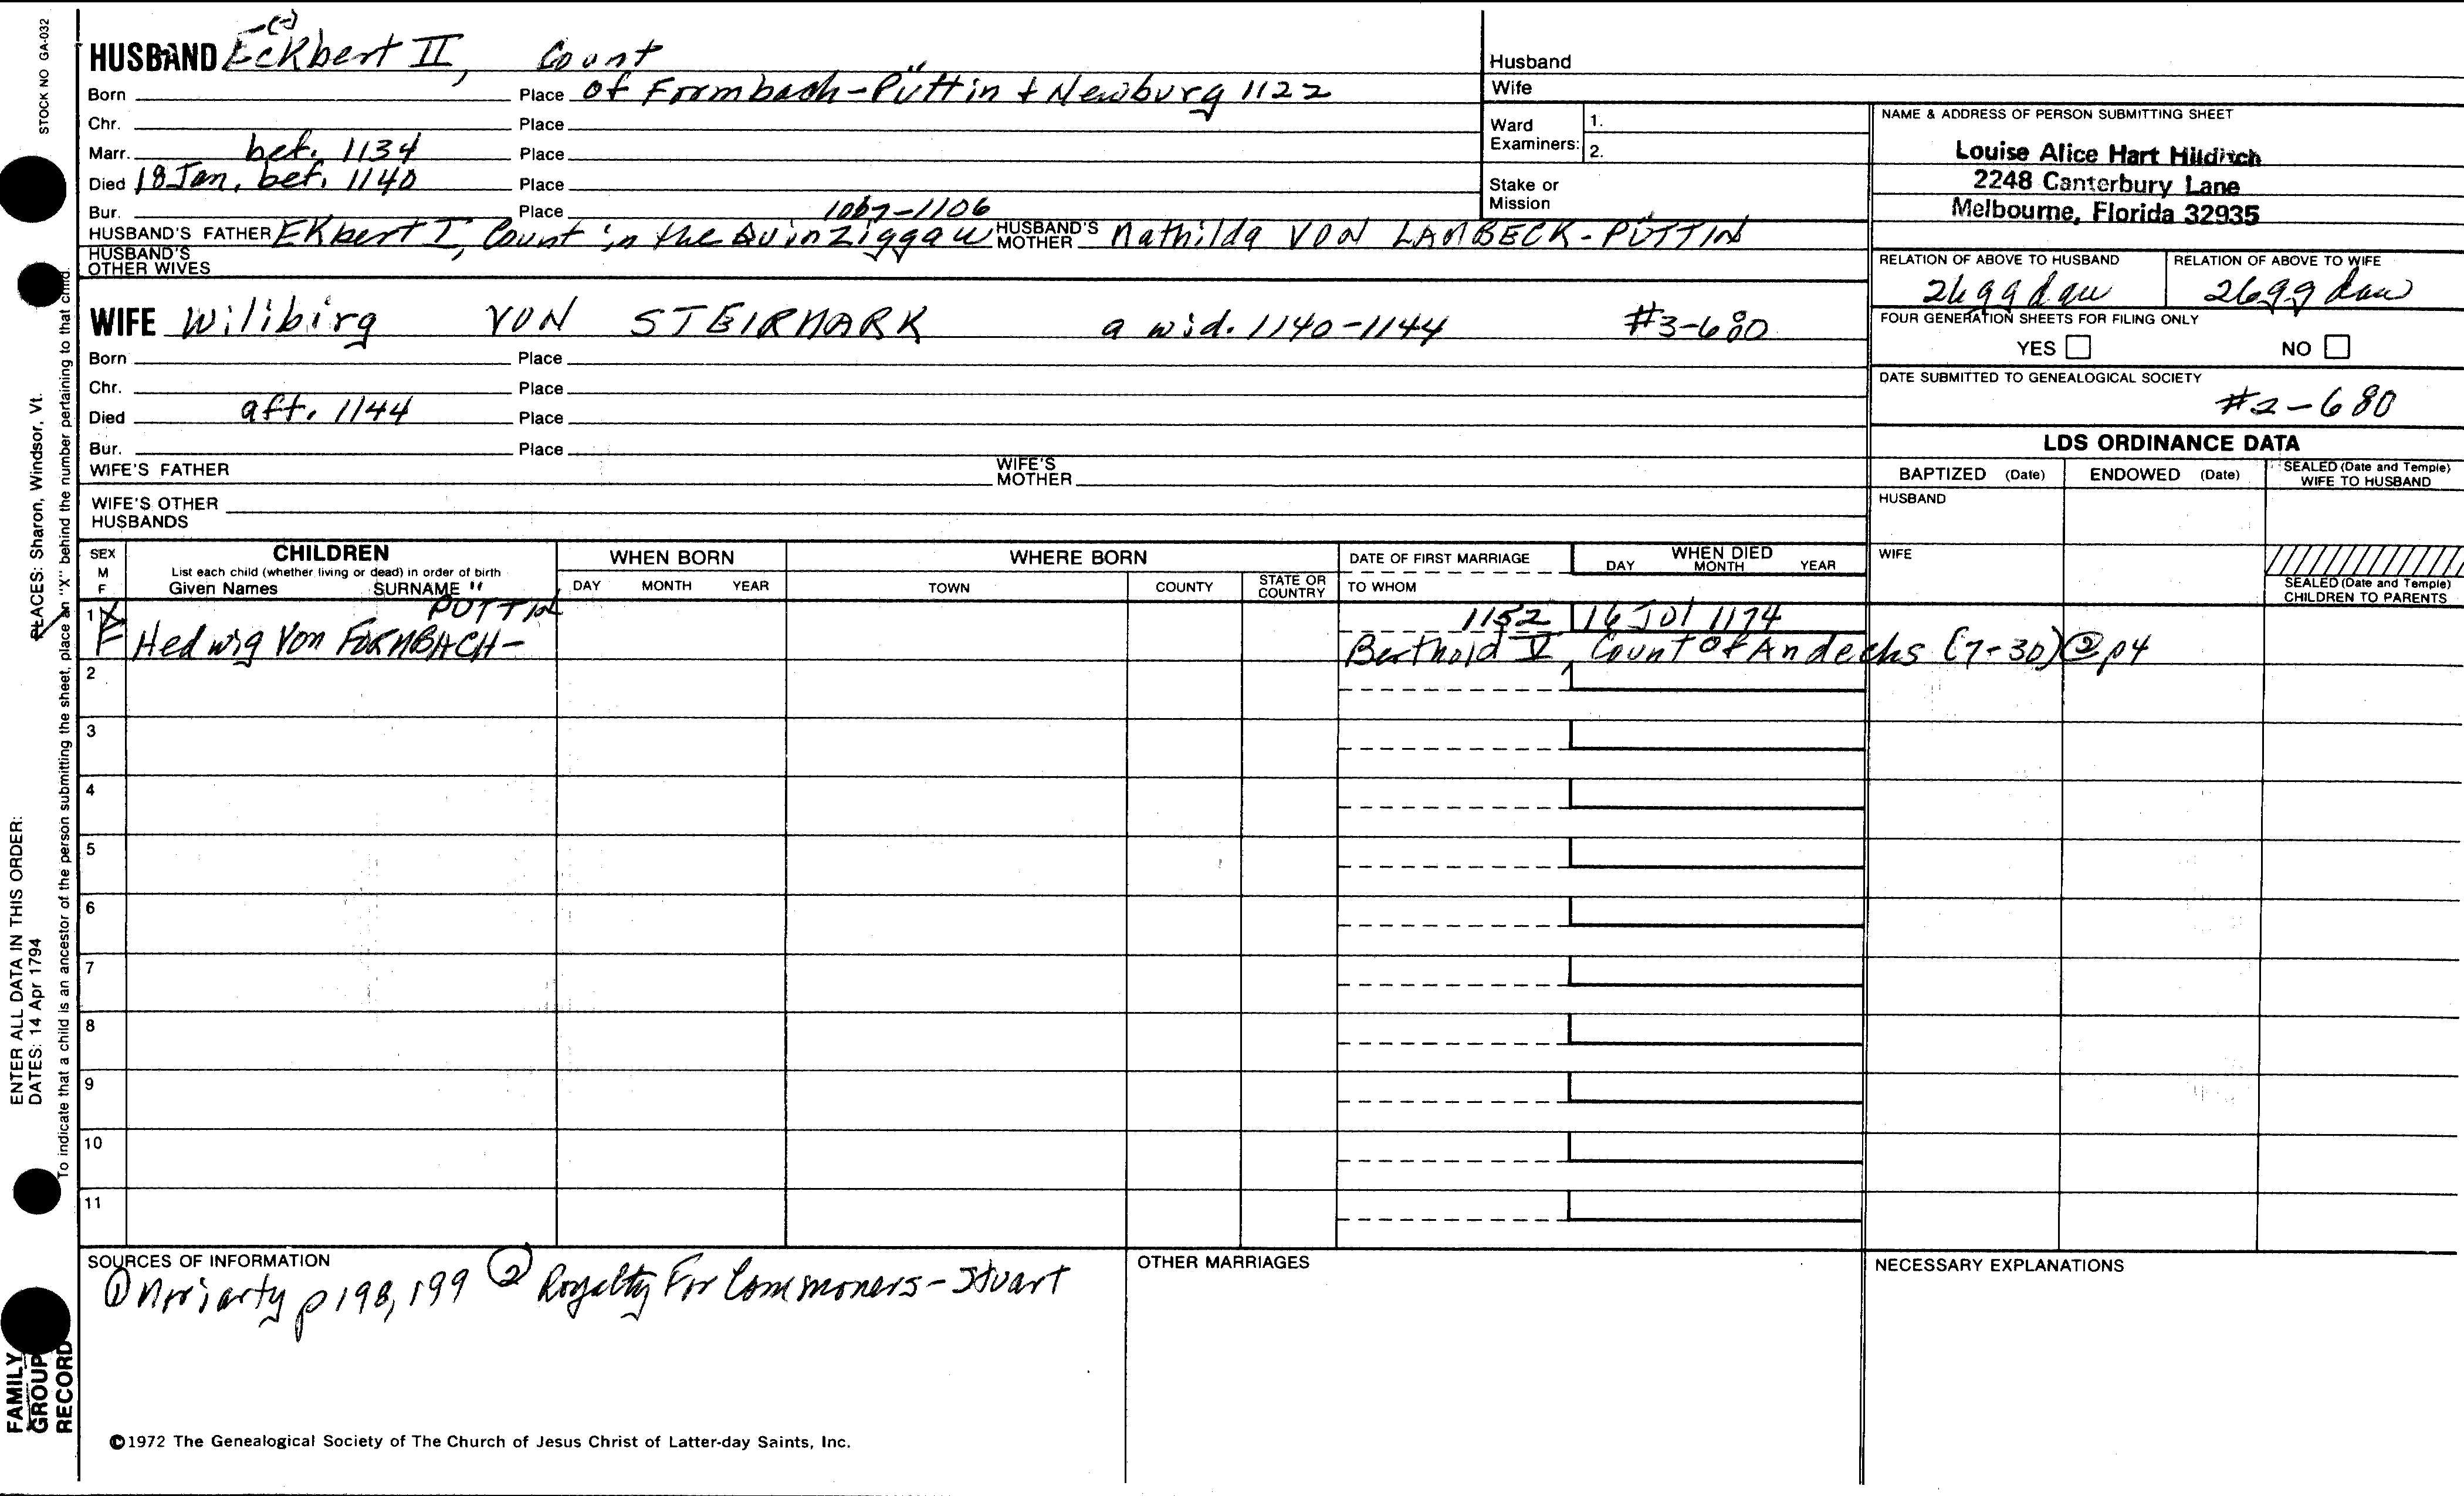 STOCK NO GA-032
PLACES: Sharon, Windsor, Vt.
ENTER ALL DATA IN THIS ORDER:
DATES: 14 Apr 1794
To indicate that a child is an ancestor of the person submitting the sheet, place an "X" behind the number pertaining to that child.
FAMILY
GROUP
RECORD
(-)
HUSBAND Eckbert II, Count
Born Place of Formbach-Püttin + Newburg 1122
Chr. Place
Marr. bef. 1134 Place
Died 18 Jan, bef. 1140 Place
Bur. Place 1067-1106
HUSBAND'S FATHER EKbert I, Count in the Quinziggau HUSBAND'S MOTHER Mathilda VON LAMBECK-PÜTTIN
HUSBAND'S
OTHER WIVES
WIFE Wilibirg VON STEIRMARK a wid. 1140-1144 #3-680
Born Place
Chr. Place
Died aft. 1144 Place
Bur. Place
WIFE'S FATHER WIFE'S MOTHER
WIFE'S OTHER
HUSBANDS
Husband
Wife
Ward 1.
Examiners: 2.
Stake or
Mission
NAME & ADDRESS OF PERSON SUBMITTING SHEET
Louise Alice Hart Hilditch
2248 Canterbury Lane
Melbourne, Florida 32935
RELATION OF ABOVE TO HUSBAND RELATION OF ABOVE TO WIFE
26ggdau 26gg dau
FOUR GENERATION SHEETS FOR FILING ONLY
YES NO
DATE SUBMITTED TO GENEALOGICAL SOCIETY
#2-680
LDS ORDINANCE DATA
BAPTIZED (Date) ENDOWED (Date) SEALED (Date and Temple) WIFE TO HUSBAND
HUSBAND
WIFE
SEALED (Date and Temple)
CHILDREN TO PARENTS
SEX CHILDREN WHEN BORN WHERE BORN DATE OF FIRST MARRIAGE WHEN DIED
M List each child (whether living or dead) in order of birth
F Given Names SURNAME DAY MONTH YEAR TOWN COUNTY STATE OR COUNTRY TO WHOM DAY MONTH YEAR
1 X PÜTTIN 1152 16 Jul 1174
F Hedwig Von FORMBACH- Berthold V, Count Of Andechs (7-30) ② p4
2
3
4
5
6
7
8
9
10
11
SOURCES OF INFORMATION
① Moriarty p 198, 199 ② Royalty For Commoners - Stuart
OTHER MARRIAGES
NECESSARY EXPLANATIONS
©1972 The Genealogical Society of The Church of Jesus Christ of Latter-day Saints, Inc.